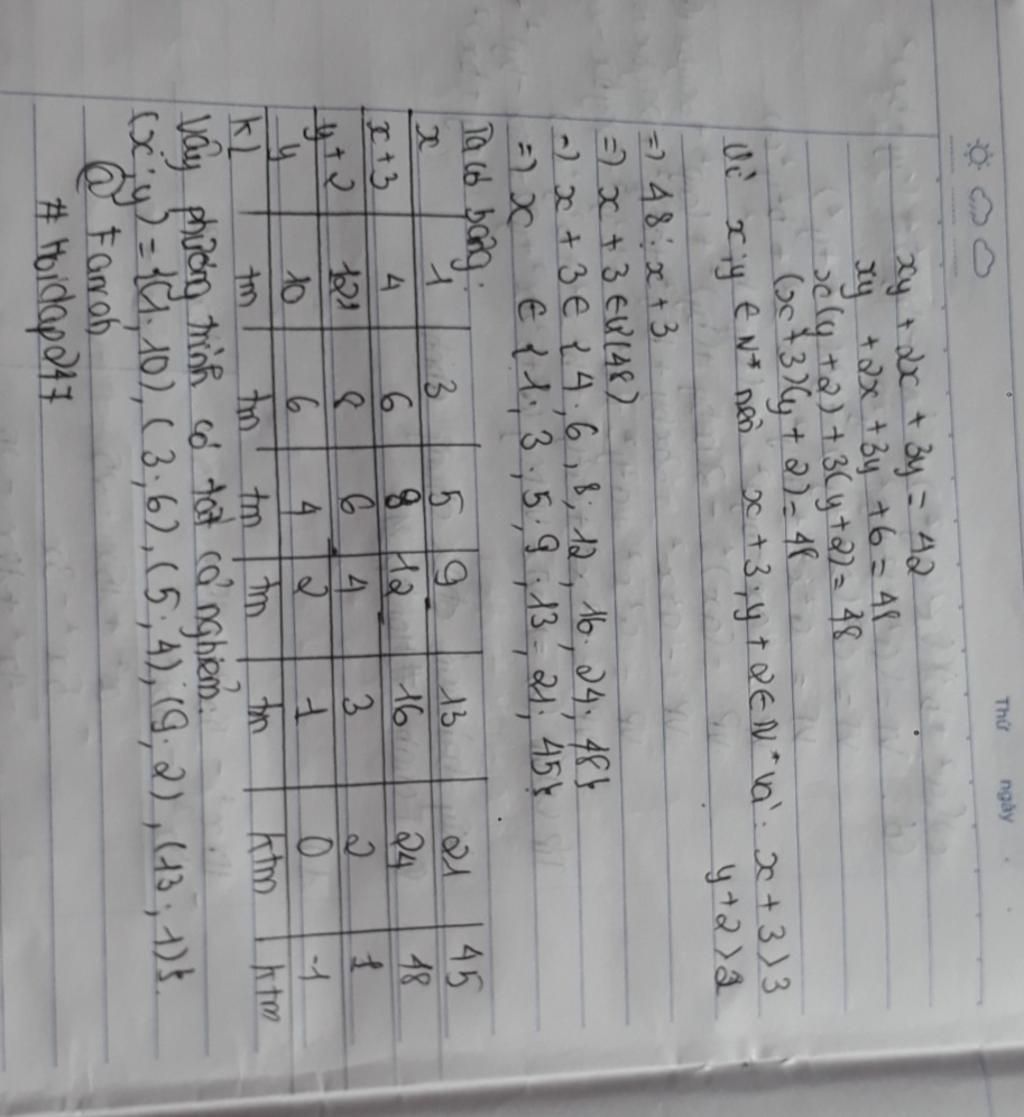 Thứ ngày
xy + 2x + 3y = 42
xy + 2x + 3y + 6 = 48
x(y + 2) + 3(y + 2) = 48
(x + 3)(y + 2) = 48
Vì x; y ∈ N* nên x + 3; y + 2 ∈ N* và: x + 3 > 3
y + 2 > 2
=> 48 ⋮ x + 3
=> x + 3 ∈ Ư(48)
=> x + 3 ∈ {4; 6; 8; 12; 16; 24; 48}
=> x ∈ {1; 3; 5; 9; 13; 21; 45}
Ta có bảng:
x 1 3 5 9 13 21 45
x + 3 4 6 8 12 16 24 48
y + 2 12 8 6 4 3 2 1
y 10 6 4 2 1 0 -1
kl tm tm tm tm tm ktm ktm
Vậy phương trình có tất cả nghiệm:
(x; y) = {(1; 10), (3; 6), (5; 4), (9; 2), (13; 1)}.
@ Fanoh
# Hoidap247